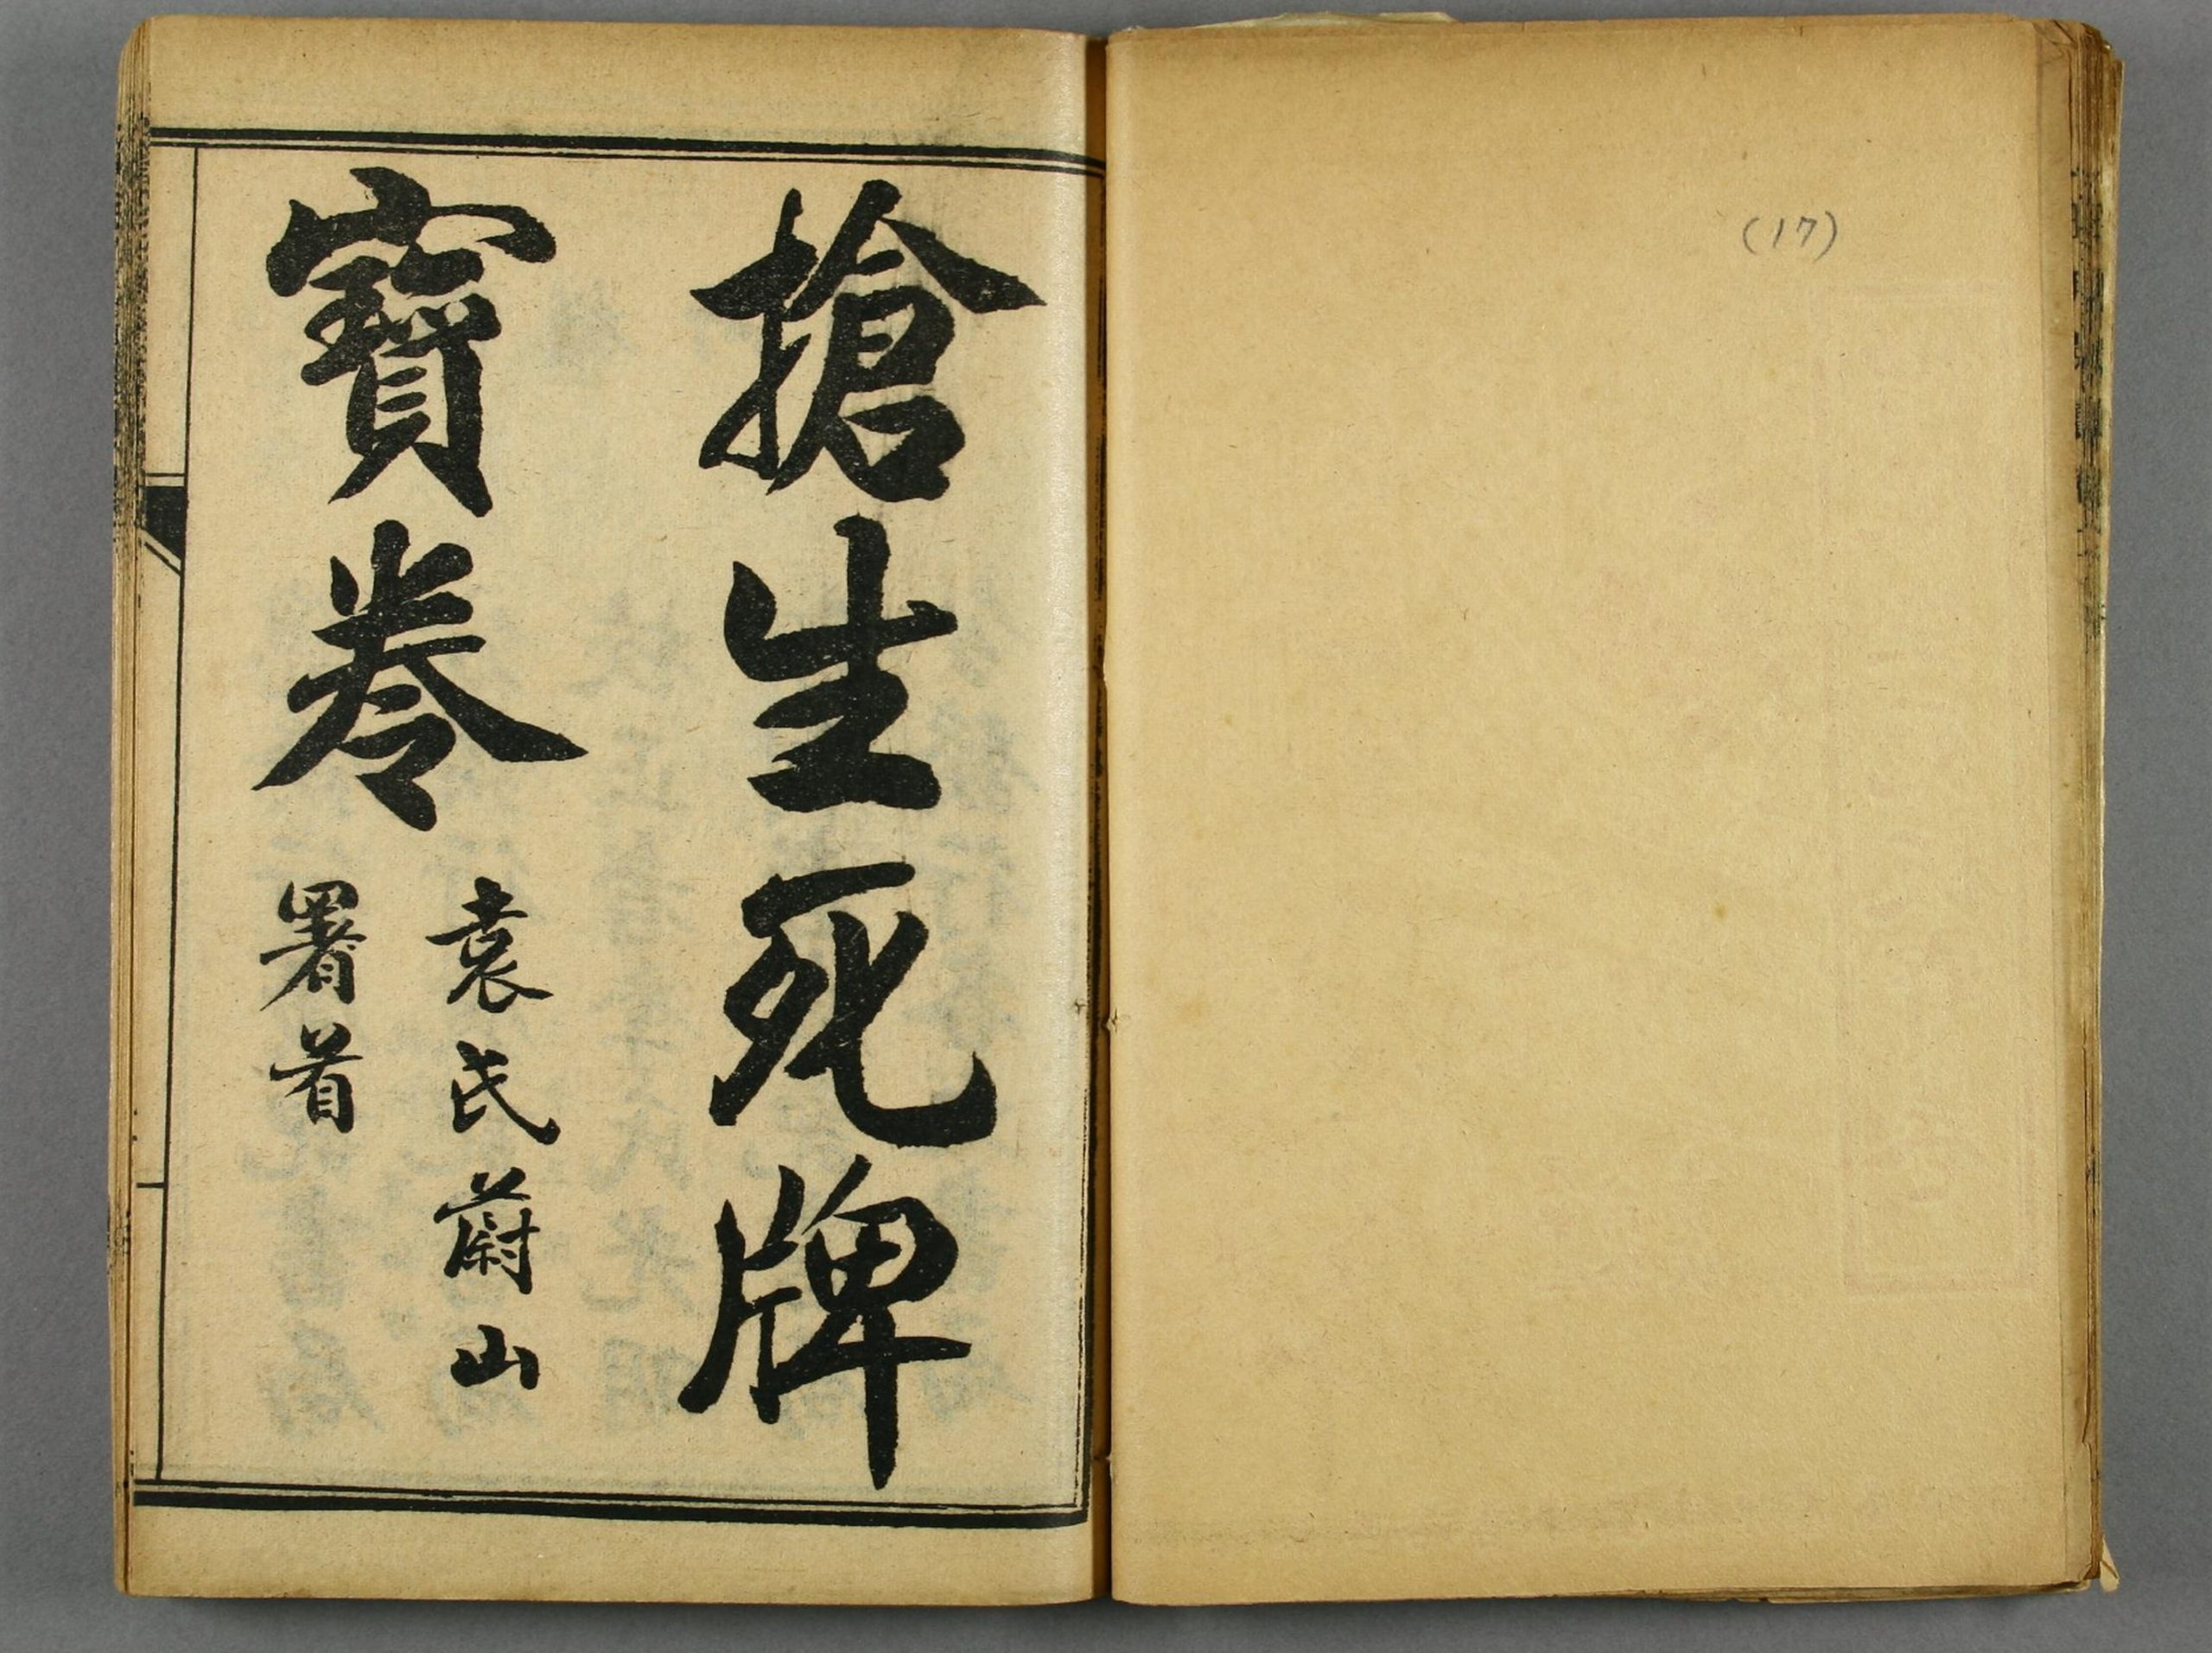 (17)
搶生死牌
寶卷
袁氏蔚山
署首